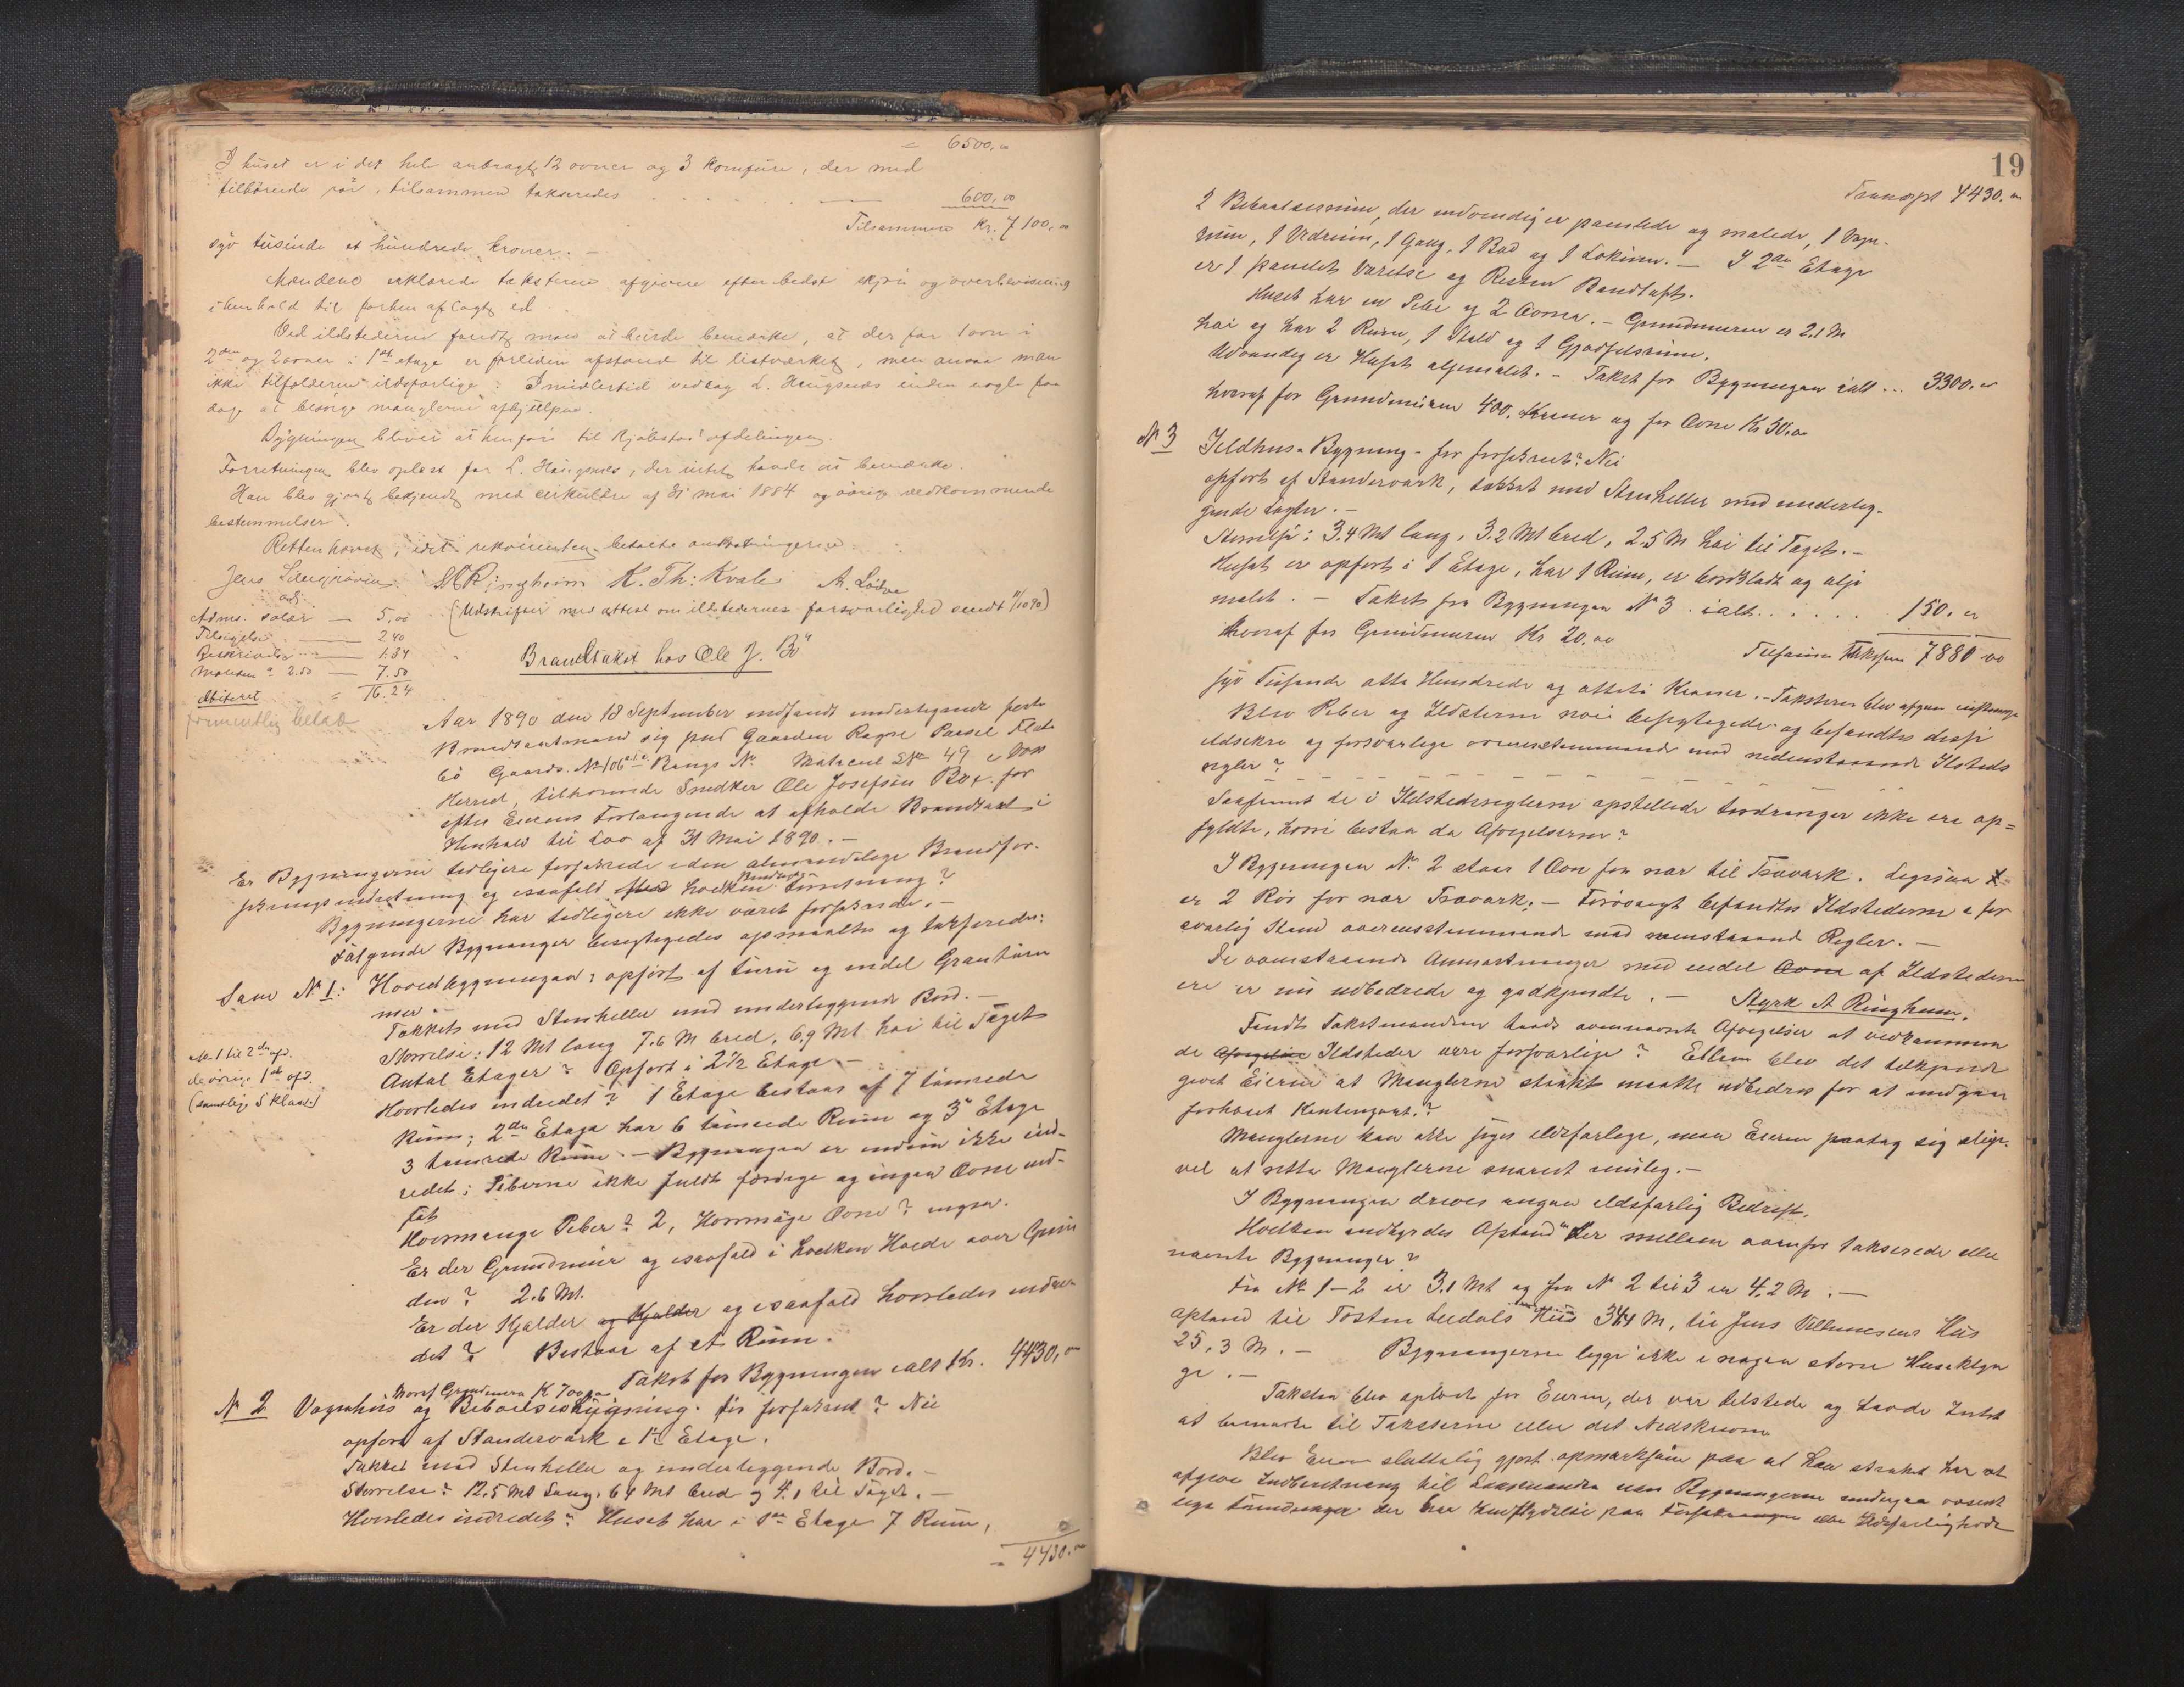 = 6500,00
I huset er i det hele anbragt 12 ovner og 3 komfurer, der med
tilhörende rör, tilsammen takseredes . . . . . 600,00
Tilsammen Kr. 7100,00
syv tusinde et hundrede kroner. –
Mændene erklærede taksterne afgivne efter bedst skjön og overbevisning
i henhold til forhen aflagt ed.
Ved ildstederne fandt man at burde bemærke, at der for 1 ovn i
2den og 2 ovner i 1ste etage er forliden afstand til listværket, men ansaa man
ikke tilfælderne ildsfarlige: Imidlertid vedtog L. Haugsnæs inden nogle faa
dage at besörge manglerne afhjulpne.
Bygningen bliver at henföre til Kjöbstad afdelingen.
Forretningen blev oplæst for L. Haugsnæs, der intet havde at bemærke.
Han blev gjort bekjendt med cirkulære af 31 mai 1884 og övrige vedkommende
bestemmelser.
Retten hævet, idet rekvirenten betalte omkostningerne.
K. Th: Kvale
adj.
(Udskrifter med attest om ildstedernes forsvarlighed sendt 11/10 90)
Adms. salær — 5,00
Tilsigelse — 2.40
Beskrivelse — 1.34
Mændene a 2.50 — 7.50
debiteret = 16.24
formentlig betalt
Brandtakst hos Ole J. Bö
Aar 1890 den 18 September indfandt undertegnede faste
Brandtaxtmænd sig paa Gaarden Parsel
Gaards. No 106 Brugs No Matrecul LNo 49 i Vos
Herred, tilhörende Snedker Ole Josefsön Bö, for
efter Eierens Forlangende at afholde Brandtaxt i
Henhold til Lov af 31 Mai 1890. –
Er Bygningerne tidligere forsikrede i den almindelige Brandfor-
sikringsindretning og isaafald hvilken Brandass. Indretning?
Bygningerne har tidligere ikke været forsikrede. –
Fölgende Bygninger besigtigedes opmaaltes og taxseredes:
Som No 1: Hovedbygningen, opfört af Furu og endel Grantöm
mer. –
Tækket med Stenheller med underliggende Bord. –
Störrelse: 12 Mt lang 7.6 M bred, 6,9 Mt höi til Taget
Antal Etager? Opfört i 2½ Etage –
No 1 til 2den afd.
de övrige 1ste afd.
(samtlig 5 klasse)
Hvorledes indredet? 1 Etage bestaar af 7 tömrede
Rum; 2den Etage har 6 tömrede Rum og 3die Etage
3 tömrede Rum – Bygningen er endnu ikke ind-
redet; Piberne ikke fuldt færdige og ingen Ovne ind-
sat
Hvormange Piber? 2, Hvormange Ovne? ingen.
Er der Grundmur og isaafald i hvilken Höide over Grun
den? 2.6 Mt.
Er der Kjælder og Kjælder og isaafald hvorledes indre
det? Bestaar af et Rum.
Takst for Bygningen ialt Kr. 4430,00
hvoraf Grundmuren K 700,00
No 2 Vognhus og Beboelsesbygning. för forsikret? Nei
opfört af Standerværk i 1½ Etage.
Tækket med Stenheller og underliggende Bord. –
Störrelse: 12.5 Mt Lang, 6.4 Mt bred og 4.1 til Taget. –
Hvorledes indredet? Huset har i 1ste Etage 7 Rum,
= 4430.00
19
Transpt 4430.00
2 Beboelsesrum, der indvendig er panelede og malede, 1 Vogn-
rum, 1 Vedrum, 1 Gang, 1 Bod og 1 Lokum. – I 2den Etage
er 1 panelet Værelse og Resten Bordloft.
Huset har en Pibe og 2 Ovner. – Grundmuren er 2.1 M
höi og har 2 Rum, 1 Stald og 1 Gjödselsrum.
Udvendig er Huset oljemalet. – Takst for Bygningen ialt ... 3300.00
hvoraf for Grundmuren 400. Kroner og for Ovne Kr 30.00
No 3 Ildhus-Bygning – för forsikret? Nei
opfört af Standerværk, tækket med Stenheller med underlig-
gende Lægter. –
Störrelse: 3.4 Mt lang, 3.2 Mt bred, 2.5 M höi til Taget. –
Huset er opfört i 1 Etage, har 1 Rum, er bordklædt og olje
malet. – Takst for Bygningen No 3 ialt . . . . . 150.00
hvoraf for Grundmuren Kr 20.00
Tilsammen Taksum 7880 00
syv Tusende otte Hundrede og otteti Kroner. – Taksterne blev afgivne enstemmige
Blev Piber og Ildsterne nöie besigtigede og befandtes disse
ildsikre og forsvarlige overensstemmende med nedenstaaende Ilsteds
regler?
Saafremt de i Ildstedsreglerne opstillede Fordringer ikke ere op=
fyldte, hvori bestaa da Afvigelserne?
I Bygningen No 2 staar 1 Ovn for nær til Træværk. Ligesaa
er 2 Rör for nær Træværk; – Forövrigt befandtes Ildstederne i for
svarlig Stand overensstemmende med ovenstaaende Regler. –
De ovenstaaende Anmærkninger med endel Ovne af Ildstederne
ere er nu udbedrede og godkjendte. – Styrk A Ringheim.
Fandt Takstmændene trods ovennævnte Afvigelser at vedkommen
de Afvigelser Ildsteder vare forsvarlige? Ellers blev det tilkjende
givet Eieren at Manglerne strakst maatte udbedres for at undgaa
forhöiet Kontingent?
Manglerne kan ikke siges ildsfarlige, men Eieren paatog sig alige-
vel at rette Manglerne snarest mulig. –
I Bygningen drives ingen ildsfarlig Bedrift.
Hvilken indbyrdes Afstand er der mellem ovenfor takserede eller
nævnte Bygninger?
Fra No 1–2 er 3.1 Mt og fra No 2 til 3 er 4.2 M. –
Afstand til Tosten Hus 34,4 M, til Jens Hus
25,3 M. – Bygningerne ligge ikke i nogen större Husklyn
ge. –
Taksten blev oplæst for Eieren, der var tilstede og havde Intet
at bemærke til Taksterne eller det Nedskrevne
Blev Eieren sluttelig gjort opmærksom paa at han strakst har at
afgive Indberetning til Lensmanden naar Bygningerne undergaa væsent
lige Forandringer der har Indflydelse paa Forsikringen eller Ildsfarligheden